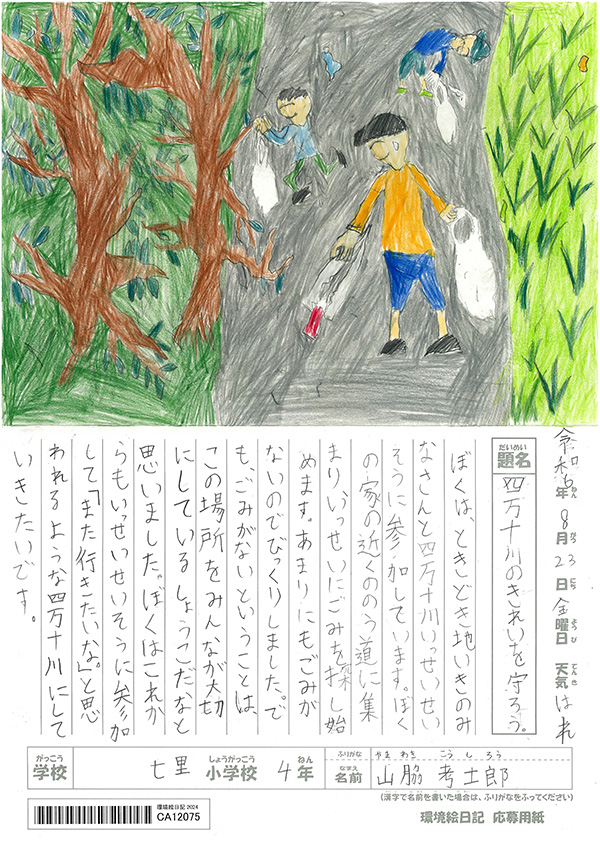 令和6年8月23日金曜日 天気はれ
ねん がつ にち ようび てんき
だいめい
題名 四万十川のきれいを守ろう。
ぼくは、ときどき地いきのみ
なさんと四万十川いっせいせい
そうに参加しています。ぼく
の家の近くののう道に集
まりいっせいにごみを探し始
めます。あまりにもごみが
ないのでびっくりしました。で
もごみがないということは、
この場所をみんなが大切
にしているしょうこだなと
思いました。ぼくはこれか
らもいっせいせいそうに参加
して「また行きたいな。」と思
われるような四万十川にして
いきたいです。
がっこう しょうがっこう ねん
学校 七里 小学校 4年
ふりがな やまわき こうしろう
なまえ
名前 山脇 考士郎
(漢字で名前を書いた場合は、ふりがなをふってください)
環境絵日記 2024
CA12075
環境絵日記 応募用紙